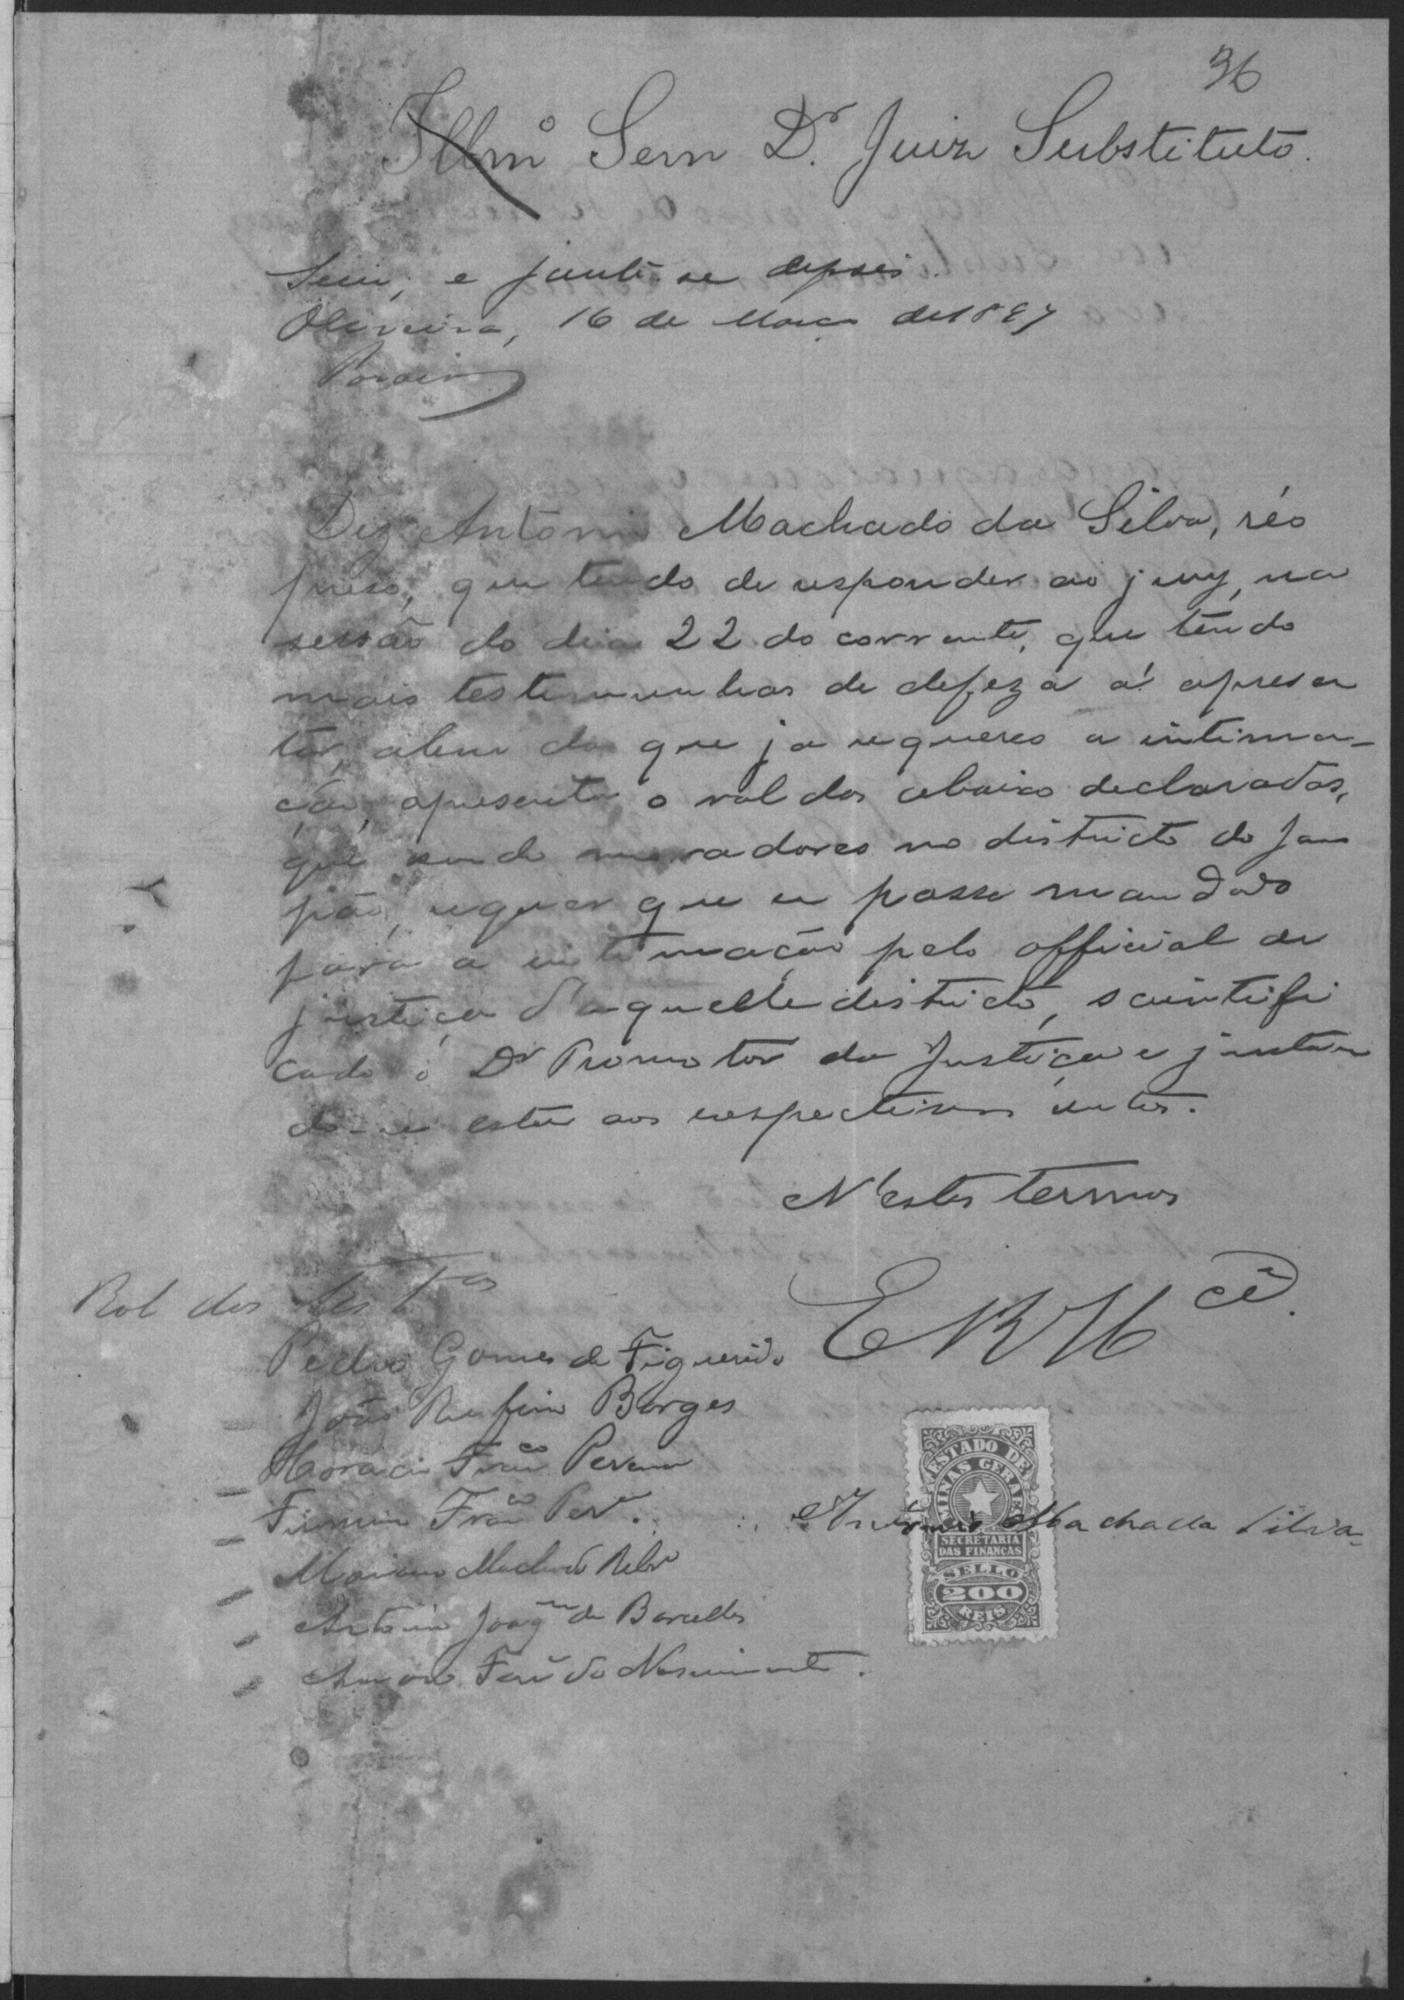 36
Illmº Senr Dr. Juiz Substituto.
Sim, e junte-se depois.
Oliveira, 16 de Março de 1897
Diz Antonio Machado da Silva, réo
preso, que tendo de responder ao jury, na
sessão do dia 22 do corrente, que tendo
mais testemunhas de defeza á apresen
tar, alem das que ja requereo a intima-
ção, apresenta o rol das abaixo declaradas,
que sendo moradores no districto do Jap
pão, requer que se passe mandado
para a intimação pelo official de
justiça d'aquelle districto, scientifi
cado o Dr Promotor da Justiça e juntan
do-se esta aos respectivos autos.
N'estes termos
E R Mcê.
Rol das testas
Pedro Gomes de Figueredo
João Rufino Borges
Horacio Franco Perª
Firmino Franco Perª.
Mariano Machado Ribrº
Antonio Joaqm de Barcellos
Amaro Ferª do Nascimento.
ESTADO DE
MINAS GERAES
SECRETARIA
DAS FINANÇAS
SELLO
200
REIS
Antonio Machada Silva